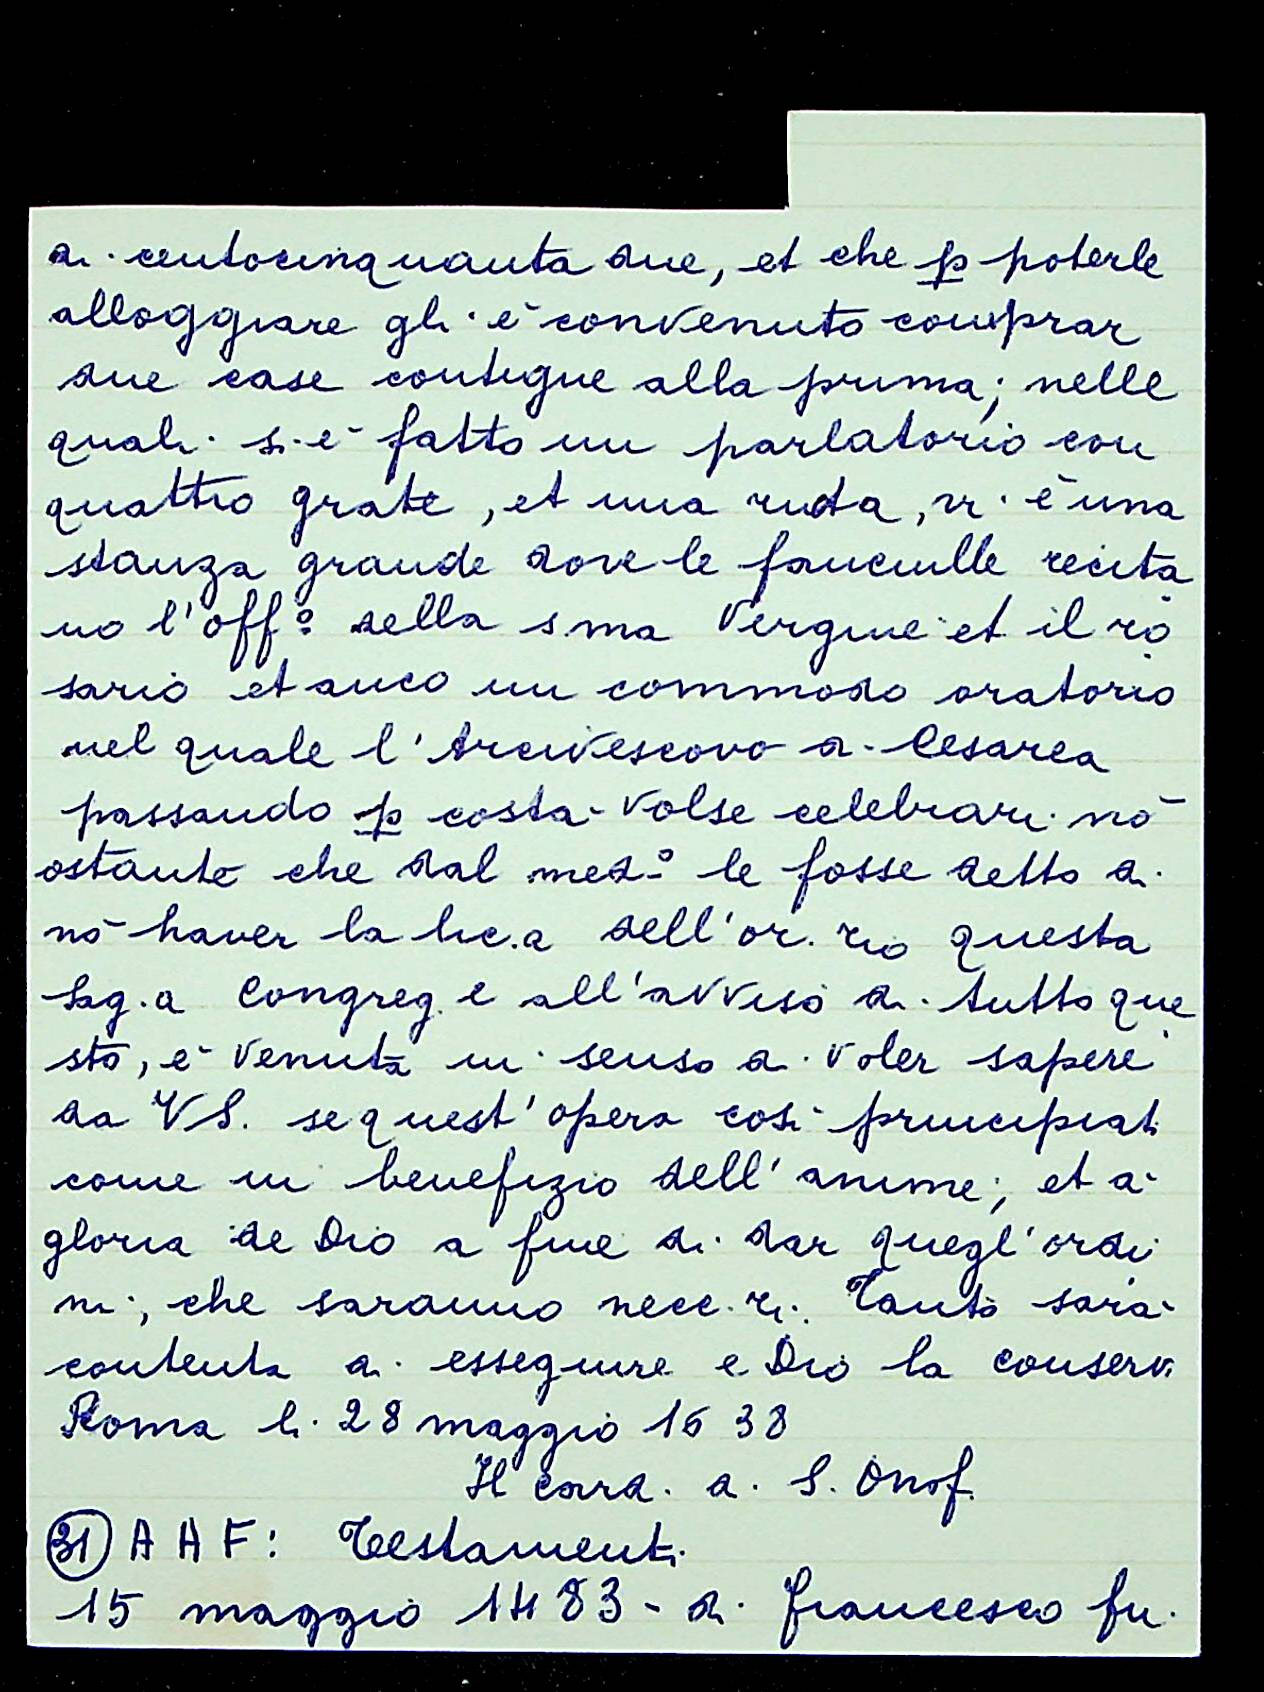 di centocinquanta due, et che p poterle
alloggiare gli è convenuto comprar
due case contigue alla prima; nelle
quali si è fatto un parlatorio con
quattro grate, et una ruota, vi è una
stanza grande dove le fanciulle recita
no l'off.º della s.ma Vergine et il ro
sario et anco un commodo oratorio
nel quale l'Arcivescovo di Cesarea
passando p costà volse celebrari nō
ostante che dal med.º le fosse detto di
nō haver la lic.a dell'or.rio questa
Sag.a Congreg. e all'avviso di tutto que
sto, è venuta in senso di voler sapere
da VS. se quest'opera così principiat
come in benefizio dell'anime; et a
gloria de Dio a fine di dar quegl'ordi
ni, che saranno nece.ri. Tanto sarà
contenta di esseguire e Dio la conservi
Roma li 28 maggio 1638
Il card. di S. Onof.
(31) A A F: Testamenti
15 maggio 1483 - di Francesco fu